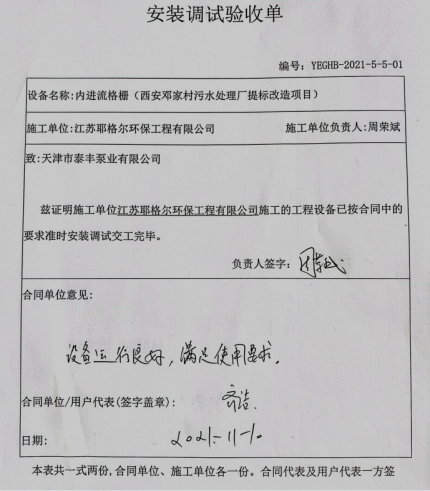 安装调试验收单
编号：YEGHB-2021-5-5-01
设备名称：内进流格栅（西安邓家村污水处理厂提标改造项目）
施工单位：江苏耶格尔环保工程有限公司 施工单位负责人：周荣斌
致：天津市泰丰泵业有限公司
兹证明施工单位江苏耶格尔环保工程有限公司施工的工程设备已按合同中的
要求准时安装调试交工完毕。
负责人签字：
合同单位意见：
设备运行良好，满足使用要求。
合同单位/用户代表（签字盖章）：
日期： 2021-11-10
本表共一式两份，合同单位、施工单位各一份。合同代表及用户代表一方签